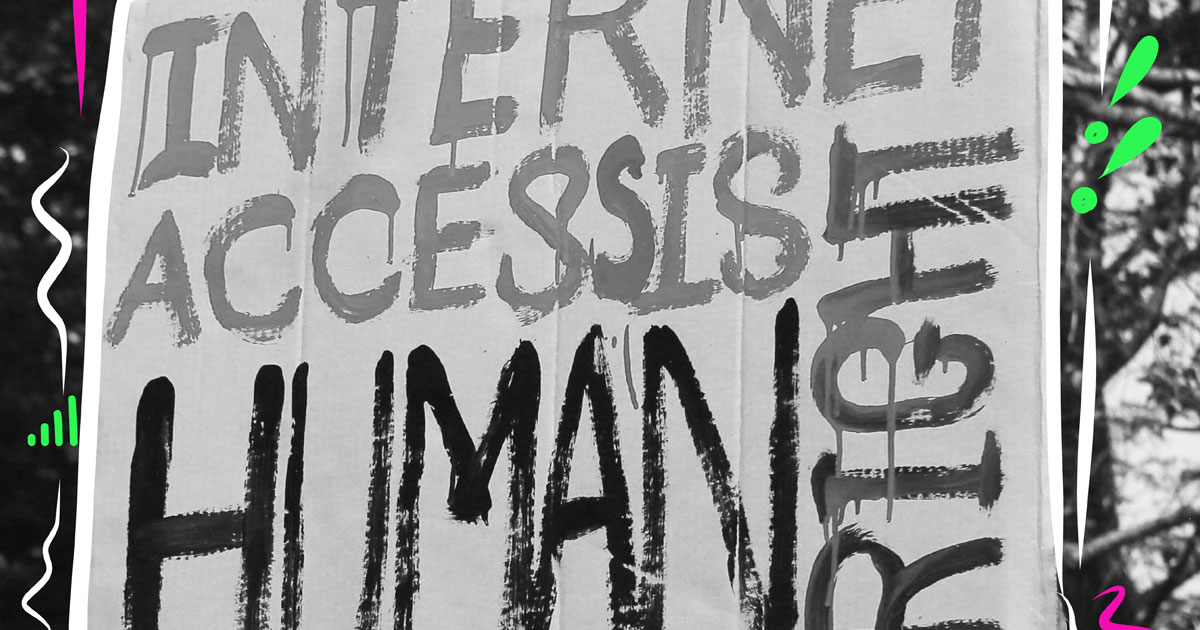 INTERNET
ACCESS IS
HUMAN
RIGHT